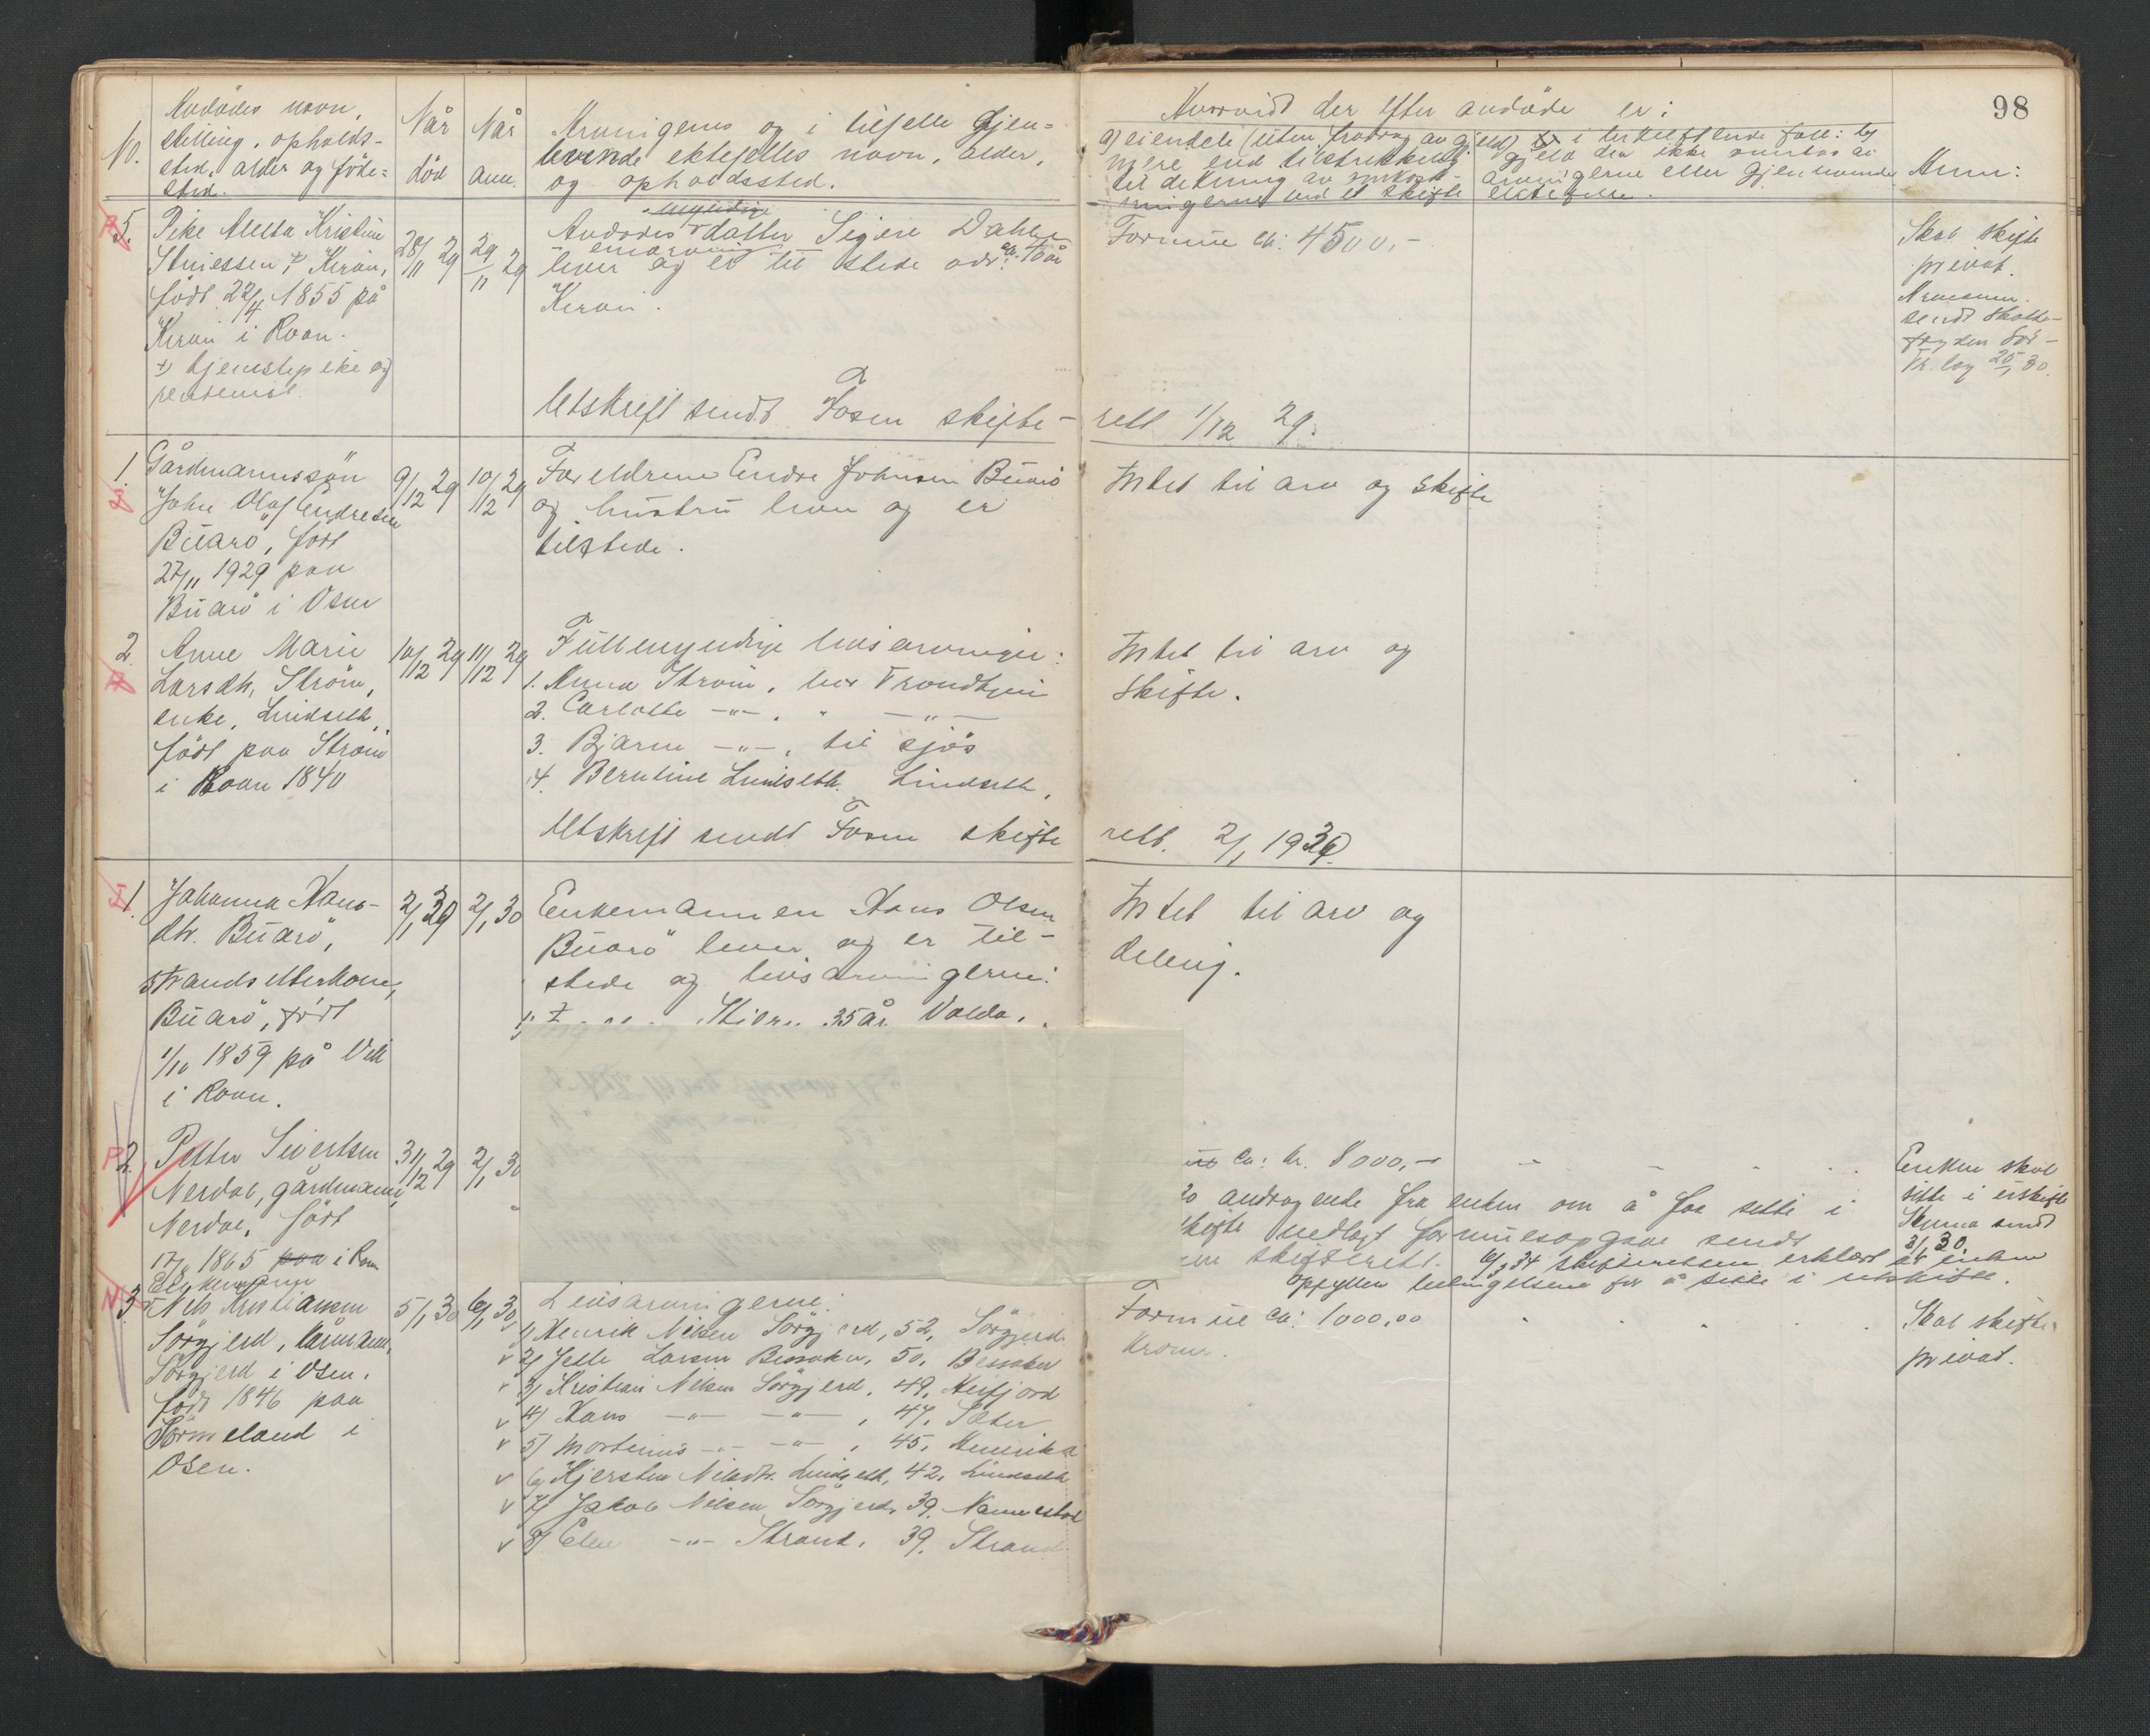 98
No.
Avdødes navn,
stilling, opholds-
sted, alder og føde-
sted.
Når
død
Når
anm.
Arvingernes og i tilfelle gjen-
levende ektefelles navn, alder,
og opholdssted.
Hvorvidt der efter avdøde er:
a) eiendele (uten fradrag av gjeld)
mere end tilstrekkelig
til dekning av omkost-
ningerne ved et skifte
i tilfelle: b)
gjeld der ikke overtas av
arvingerne eller gjenlevende
ektefelle.
Anm:
5.
Pike Aletta Kristine
født 22/4 1855 på
Kiran i Roan.
x) tjenestepike og
28/11 29
29/11 29
myndige
Avdødes datter Signe Dahle
enearving
lever og er til stede adr. ca. 40 år
Kiran.
Formue ca: 4500,-
Skal skifte
privat.
sendt skatte-
25/1 30.
Utskrift sendt Fosen skifte-
rett 1/12 29.
1.
Gårdmannssøn
Johan Olaf Endresen
Buarø, født
27/11 1929 paa
Buarø i Osen
9/12 29
10/12 29
Foreldrene Endre Johnsen Buarø
og hustru lever og er
tilstede.
Intet til arv og skifte
2
Anne Marie
Larsdtr. Strøm,
enke, Lindseth,
født paa Strøm
i Roan 1840
10/12 29
11/12 29
Fullmyndige livsarvinger:
1. Anna Strøm, bor Trondhjem
2. Carlotte -"- , " -"-
3. Bjarne -"- , til sjøs
4. Berntine Lindseth. Lindseth.
Intet til arv og
skifte.
Utskrift sendt Fosen skifte
rett. 2/1 1930.
1.
Johanna Hans-
dtr. Buarø,
strandsitterkone,
Buarø, født
1/10 1859 på
i Roan.
2/1 30
2/1 30
Enkemannen Hans Olsen
Buarø lever og er til-
stede og livsarvingerne:
35 år
Intet til arv og
deling.
2.
Petter Sivertsen
Nerdal, gårdmann,
Nerdal, født
1865 paa i Roan
31/12 29
2/1 30
ca: kr. 8000,-
andragende fra enken om å faa sitte i
skifte vedlagt formuesopgave sendt
skifterett. 6/3 34 skifteretten erklært at enken
opfyller betingelsene for å sitte i uskifte.
Enken skal
sitte i uskifte
Skjema sendt
3/6 30.
3.
Enkemann
Nils Kristiansen
Sørgjerd, kårmann,
Sørgjerd i Osen.
født 1846 paa
Sørmeland i
Osen.
5/1 30
6/1 30
Livsarvingerne:
1) Henrik Nilsen Sørgjerd, 52, Sørgjerd
v 2) Jette Larsen Bessaker, 50, Bessaker
v 3) Kristian Nilsen Sørgjerd, 49,
v 4) Hans -"- -"- , 47, Sæter
v 5) Mortinus -"- -"- , 45, Amerika
v 6) Kjersten Nilsdtr. Lindseth, 42, Lindseth
v 7) Jakob Nilsen Sørgjerd, 39.
v 8) Elen -"- Strand, 39. Strand
Formue ca: 1000,00
kroner.
Skal skifte
privat.